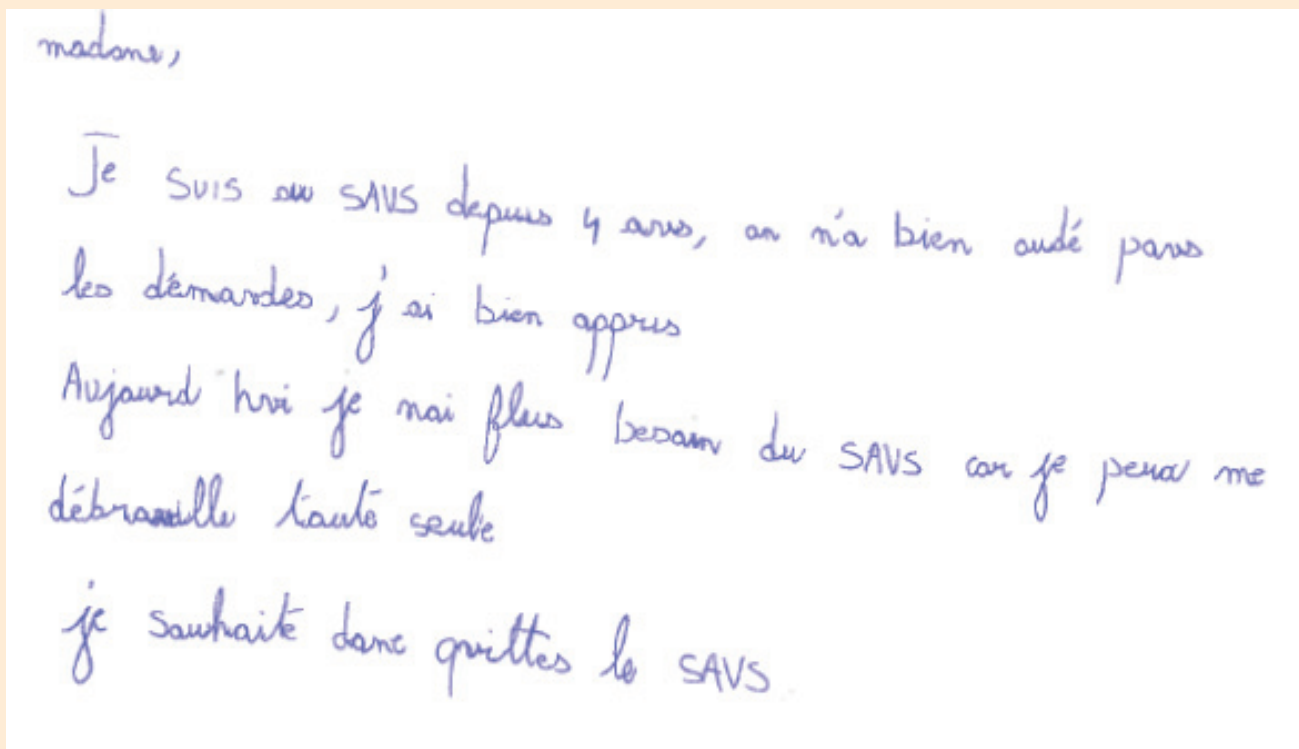 madame,
Je suis au SAVS depuis 4 ans, on n'a bien audé pous
les démandes, j'ai bien appris
Aujourd'hui je nai plus besoin du SAVS car je peux me
débrouille toute seule
je souhaite donc quittes le SAVS.